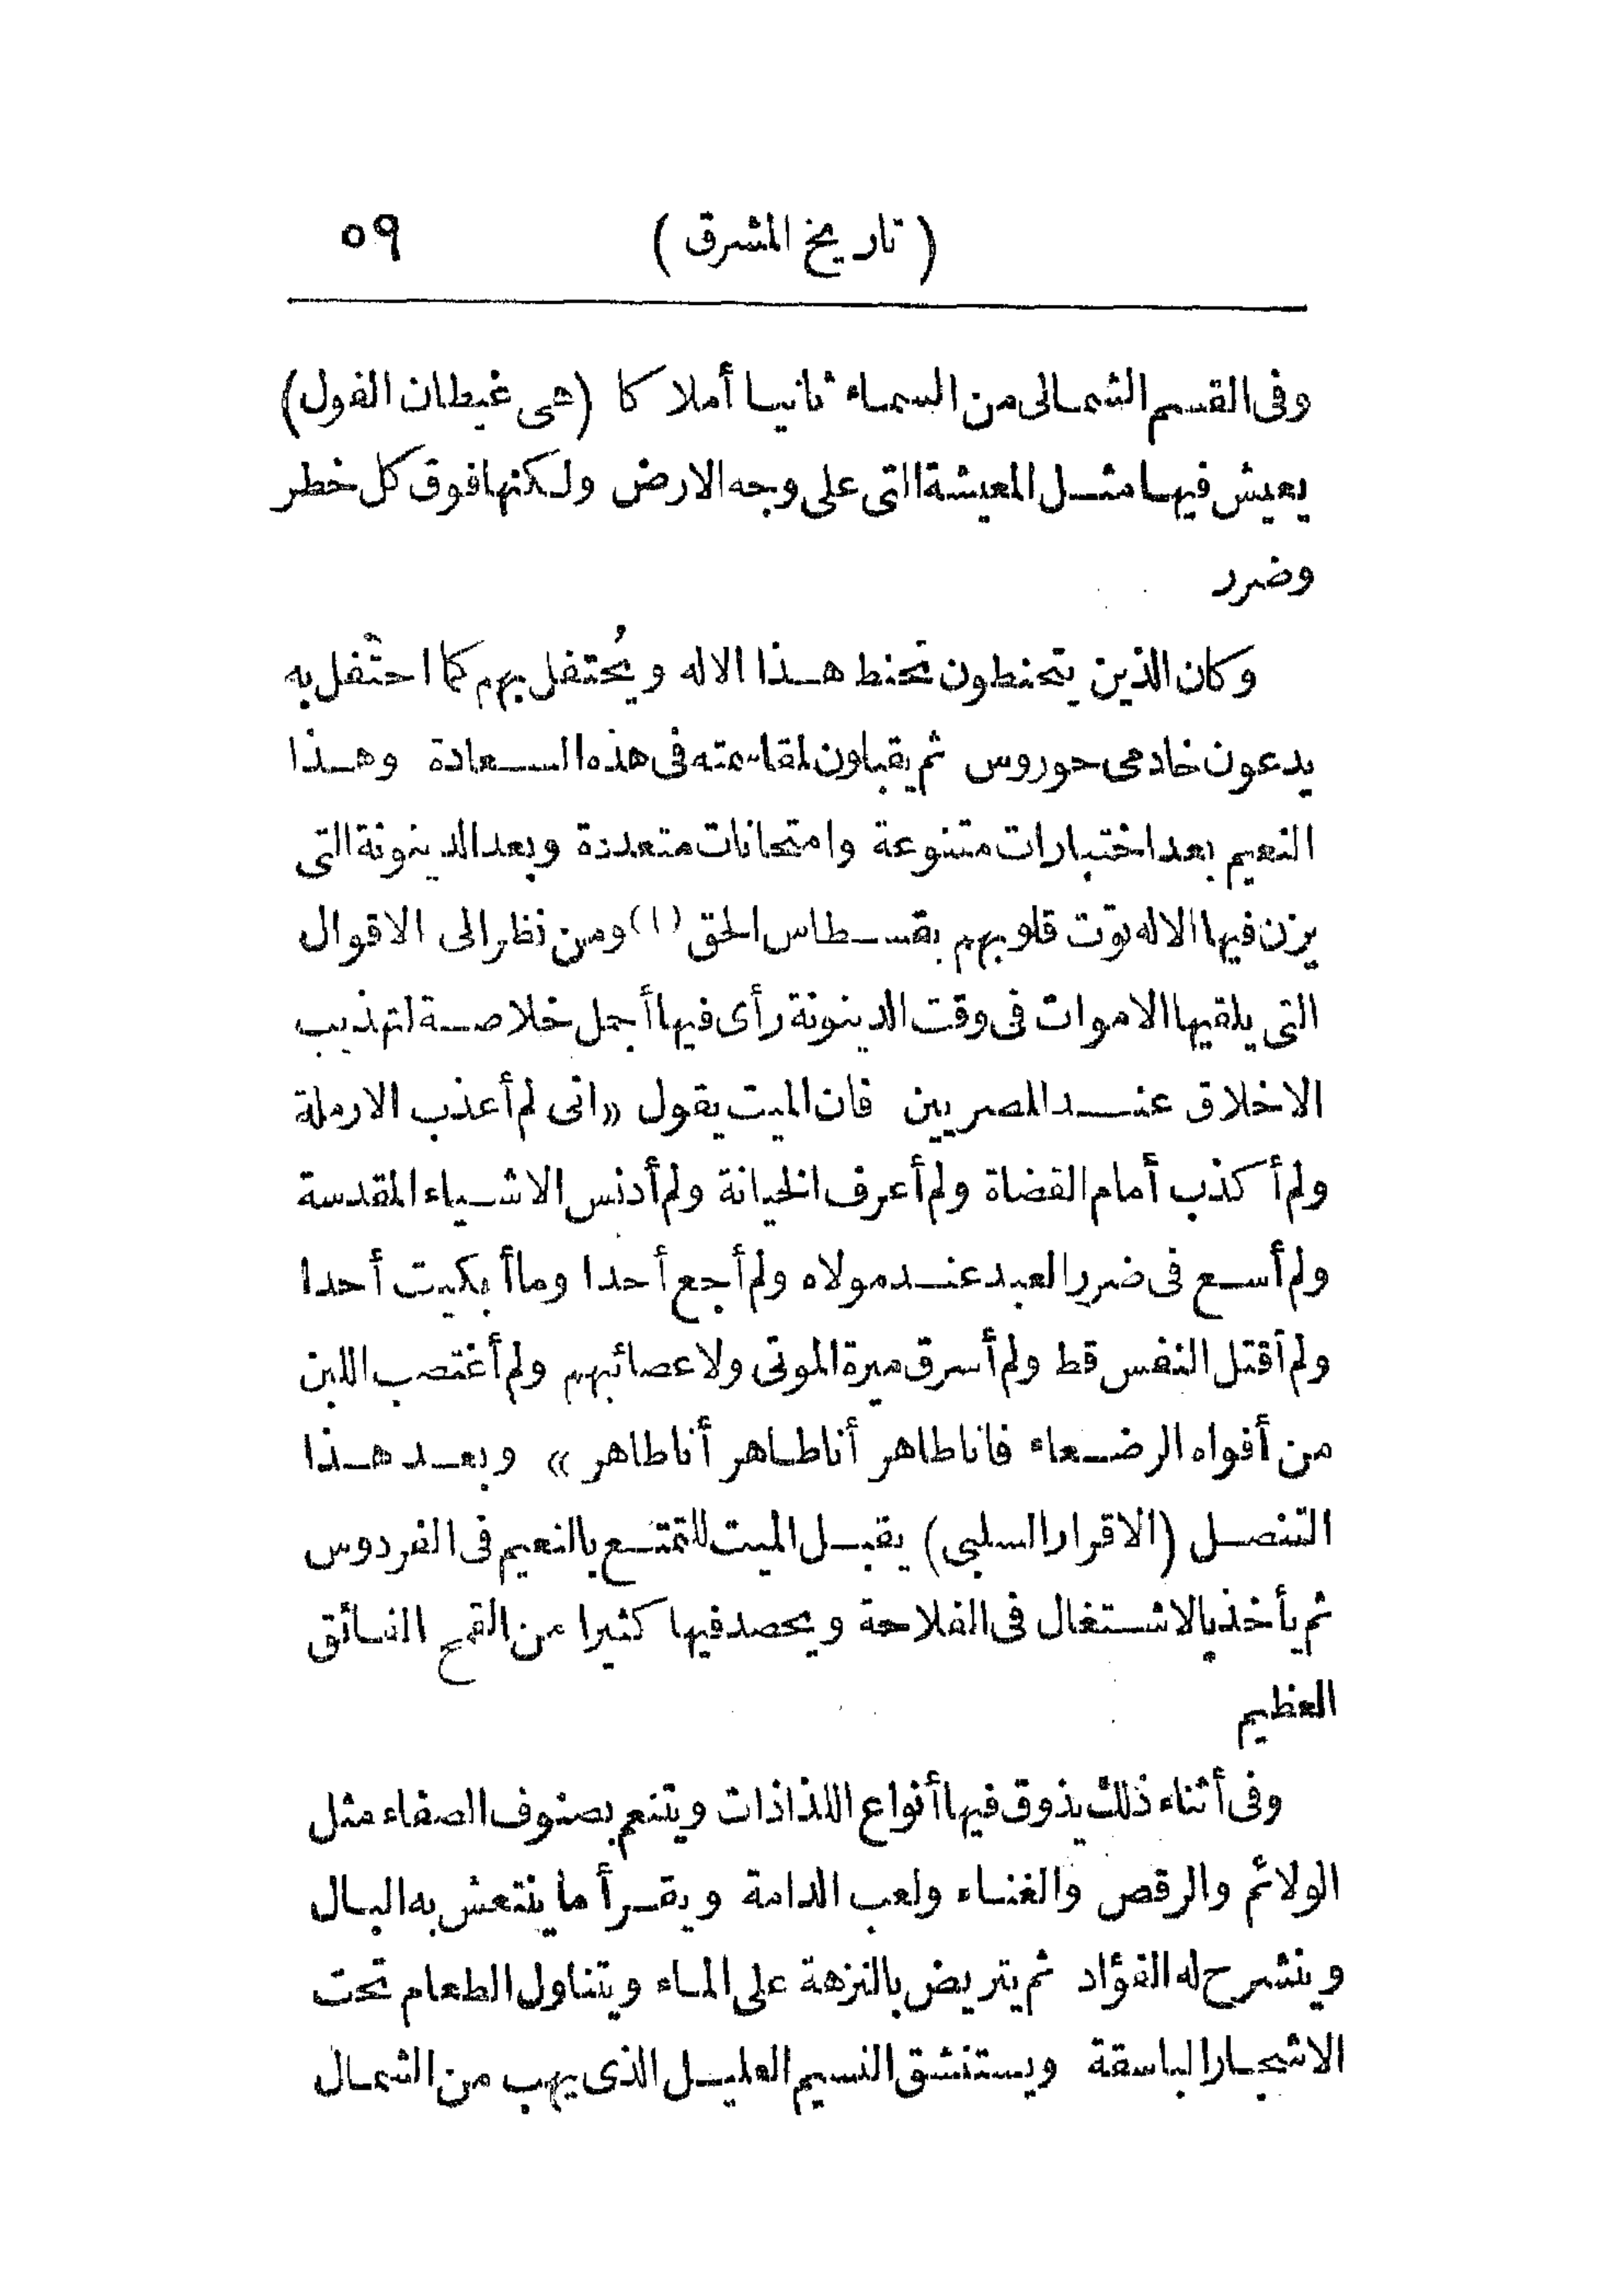 ( تاريخ المشرق ) ٥٩
وفى القسم الشمالى من السماء ثانيا أملاكا (هى غيطان الفول)
يعيش فيها مثل المعيشة التى على وجه الارض ولكنها فوق كل خطر
وضرر
وكان الذين يتحنطون تحنط هذا الاله ويُحتفل بهم كما احتُفل به
يدعون خادمى حوروس ثم يقبلون لمقاسمته فى هذه السعادة وهذا
النعيم بعد اختبارات متنوعة وامتحانات متعددة وبعد الدينونة التى
يزن فيها الاله توت قلوبهم بقسطاس الحق (١) ومن نظر الى الاقوال
التى يلقيها الاموات فى وقت الدينونة رأى فيها أجمل خلاصة لتهذيب
الاخلاق عند المصريين فان الميت يقول «انى لم أعذب الارملة
ولم أكذب أمام القضاة ولم أعرف الخيانة ولم أدنس الاشياء المقدسة
ولم أسع فى ضرر العبد عند مولاه ولم أجع أحدا وما أبكيت أحدا
ولم أقتل النفس قط ولم أسرق ميرة الموتى ولا عصائبهم ولم أغتصب اللبن
من أفواه الرضعاء فانا طاهر أنا طاهر أنا طاهر» وبعد هذا
التنصل (الاقرار السلبى) يقبل الميت للتمتع بالنعيم فى الفردوس
ثم يأخذ بالاشتغال فى الفلاحة ويحصد فيها كثيرا من القمح الفائق
العظيم
وفى أثناء ذلك يذوق فيها أنواع اللذاذات ويتنعم بصنوف الصفاء مثل
الولائم والرقص والغناء ولعب الدامة ويقرأ ما ينتعش به البال
وينشرح له الفؤاد ثم يتريض بالنزهة على الماء ويتناول الطعام تحت
الاشجار الباسقة ويستنشق النسيم العليل الذى يهب من الشمال